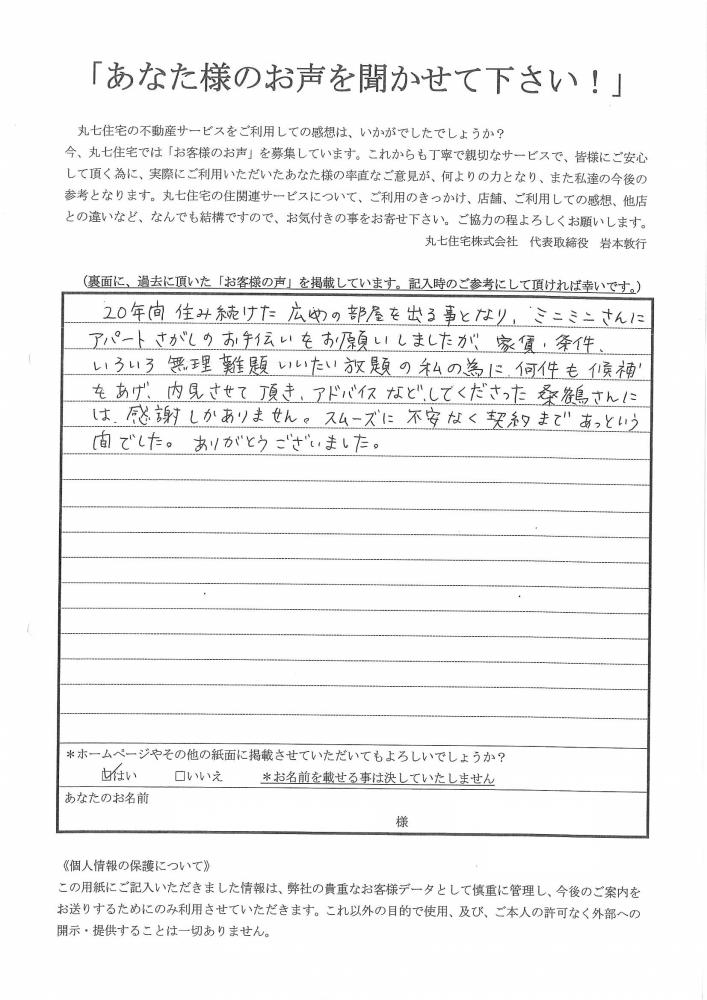 「あなた様のお声を聞かせて下さい！」
丸七住宅の不動産サービスをご利用しての感想は、いかがでしたでしょうか？
今、丸七住宅では「お客様のお声」を募集しています。これからも丁寧で親切なサービスで、皆様にご安心
して頂く為に、実際にご利用いただいたあなた様の率直なご意見が、何よりの力となり、また私達の今後の
参考となります。丸七住宅の住関連サービスについて、ご利用のきっかけ、店舗、ご利用しての感想、他店
との違いなど、なんでも結構ですので、お気付きの事をお寄せ下さい。ご協力の程よろしくお願いします。
丸七住宅株式会社　代表取締役　岩本敦行
（裏面に、過去に頂いた「お客様の声」を掲載しています。記入時のご参考にして頂ければ幸いです。）
20年間 住み続けた 広めの部屋を出る事となり、ミニミニさんに
アパート さがしの お手伝い を お願い しましたが、家賃・条件、
いろいろ 無理難題 いいたい放題 の 私の為に 何件も 候補
をあげ、内見させて 頂き、アドバイス など、してくださった 桑鶴さんに
は、感謝しかありません。スムーズに 不安なく 契約まで あっという
間でした。 ありがとうございました。
＊ホームページやその他の紙面に掲載させていただいてもよろしいでしょうか？
☑はい　□いいえ　＊お名前を載せる事は決していたしません
あなたのお名前
様
《個人情報の保護について》
この用紙にご記入いただきました情報は、弊社の貴重なお客様データとして慎重に管理し、今後のご案内を
お送りするためにのみ利用させていただきます。これ以外の目的で使用、及び、ご本人の許可なく外部への
開示・提供することは一切ありません。